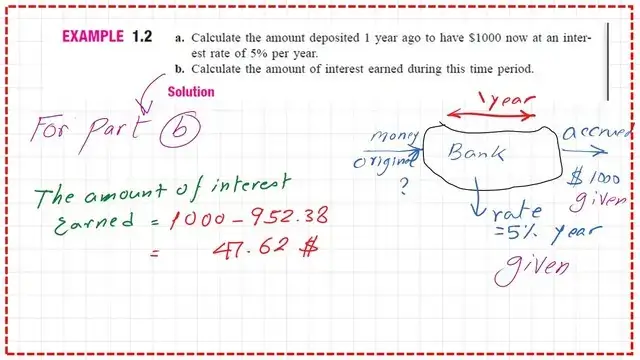 EXAMPLE 1.2
a. Calculate the amount deposited 1 year ago to have $1000 now at an inter-
est rate of 5% per year.
b. Calculate the amount of interest earned during this time period.
Solution
For part b
The amount of interest
Earned = 1000 - 952.38
= 47.62 $
1 year
money
original
?
Bank
accrued
$ 1000
given
rate
=5% year
given